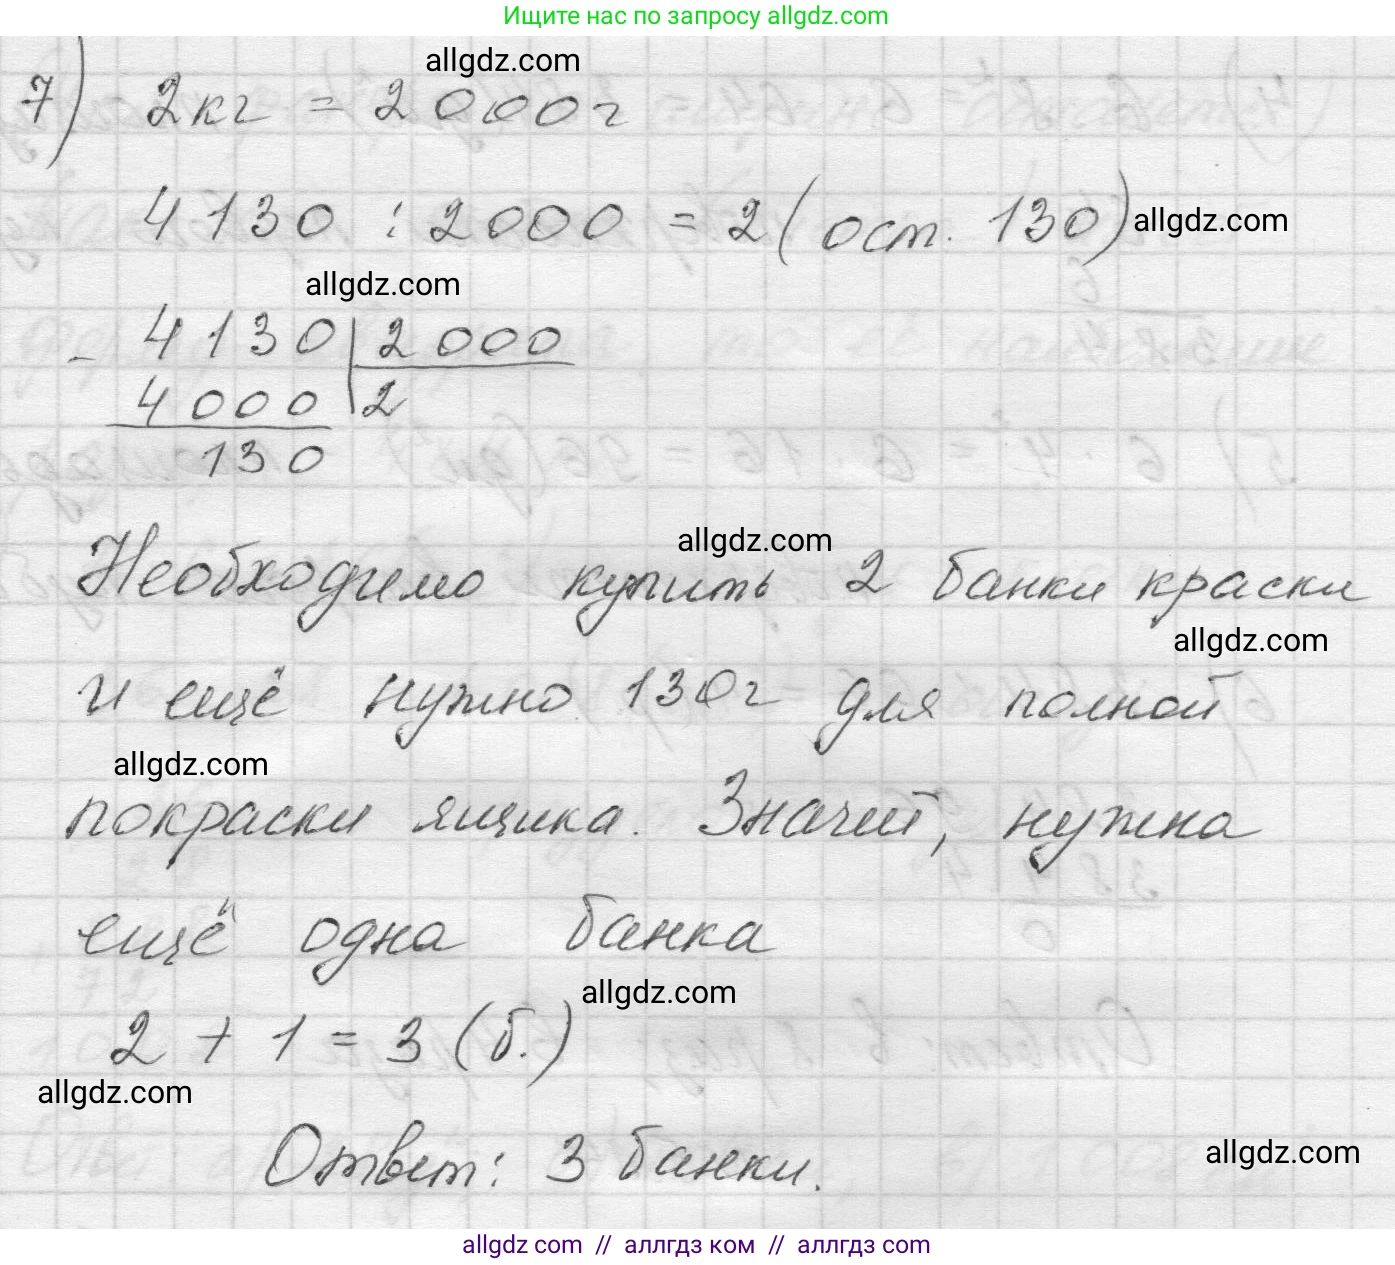 Ищите нас по запросу allgdz.com
allgdz.com
7) 2кг = 2000г
4130 : 2000 = 2 (ост. 130) allgdz.com
allgdz.com
- 4130 | 2000
4000 | 2
130
allgdz.com
Необходимо купить 2 банки краски
allgdz.com
и ещё нужно 130г для полной
allgdz.com
покраски ящика. Значит, нужна
ещё одна банка
allgdz.com
2 + 1 = 3 (б.)
allgdz.com
Ответ: 3 банки.
allgdz.com
allgdz com // аллгдз ком // аллгдз com